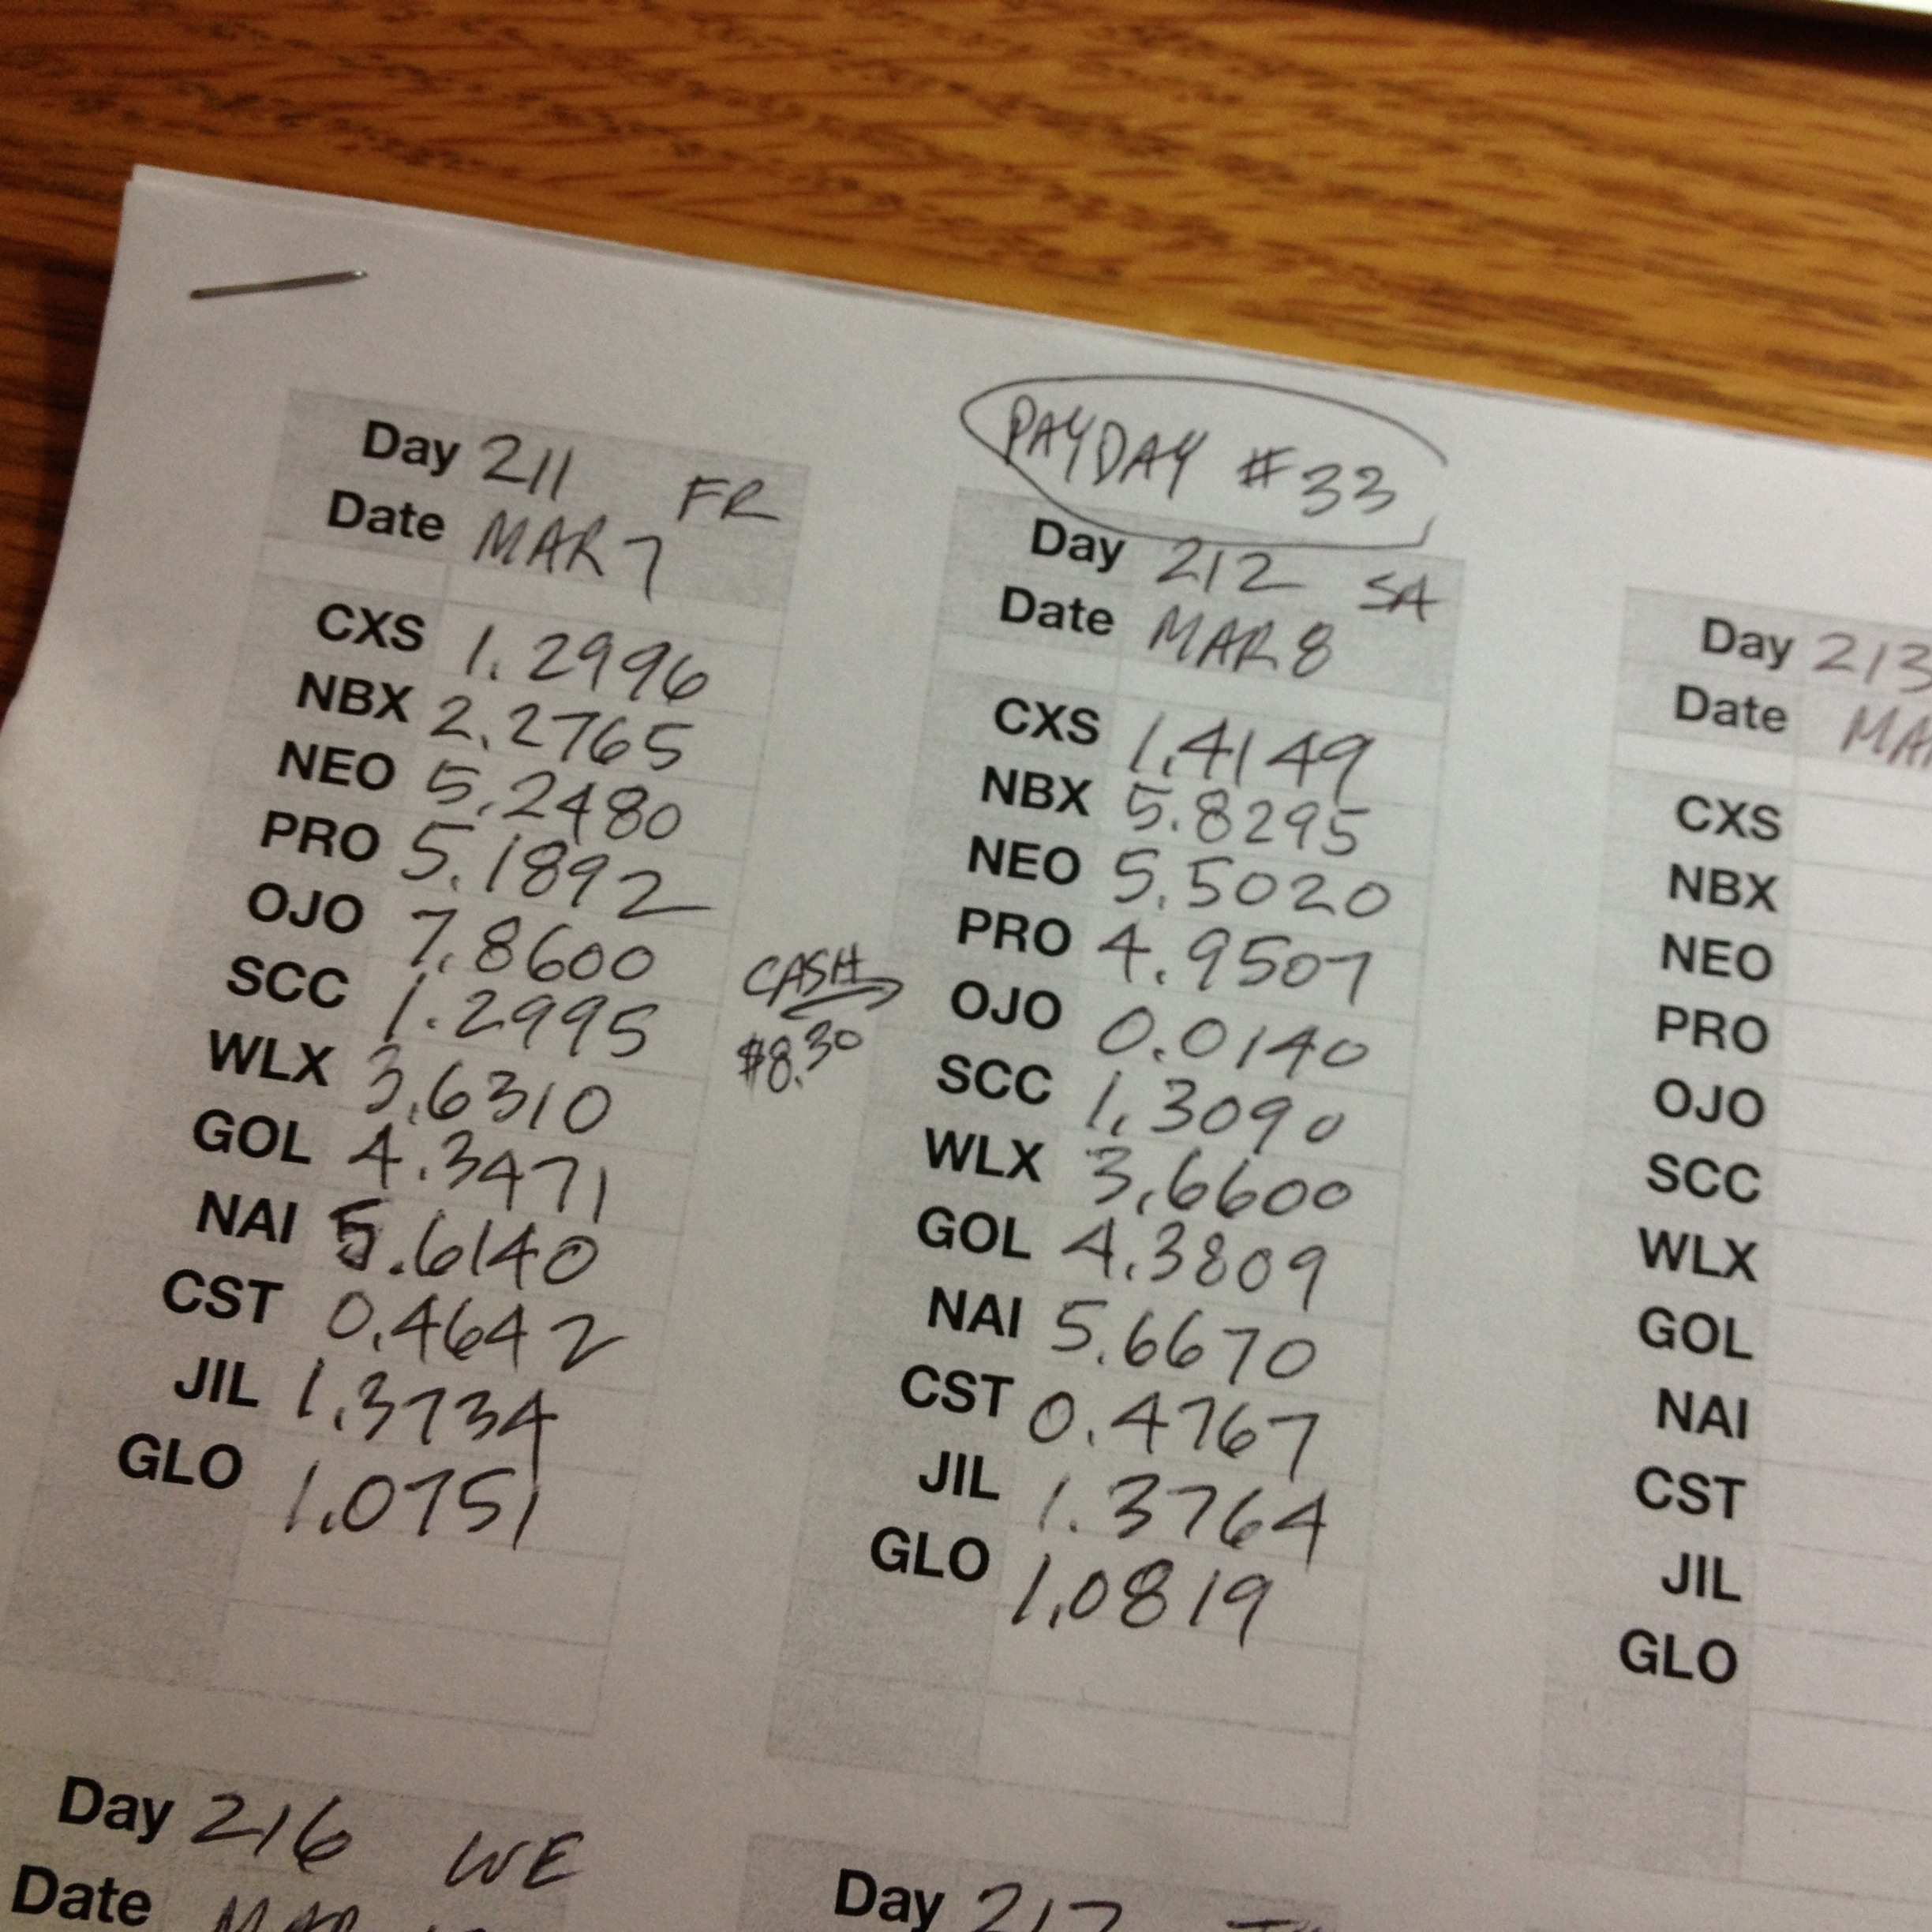 Day 211 FR
Date MAR 7
CXS 1.2996
NBX 2.2765
NEO 5.2480
PRO 5.1892
OJO 7.8600
SCC 1.2995
WLX 3.6310
GOL 4.3471
NAI 5.6140
CST 0.4642
JIL 1.3734
GLO 1.0751
CASH
$8.30
PAYDAY #33
Day 212 SA
Date MAR 8
CXS 1.4149
NBX 5.8295
NEO 5.5020
PRO 4.9507
OJO 0.0140
SCC 1.3090
WLX 3.6600
GOL 4.3809
NAI 5.6670
CST 0.4767
JIL 1.3764
GLO 1.0819
Day 213
Date MA
CXS
NBX
NEO
PRO
OJO
SCC
WLX
GOL
NAI
CST
JIL
GLO
Day 216 WE
Date MAR
Day 217